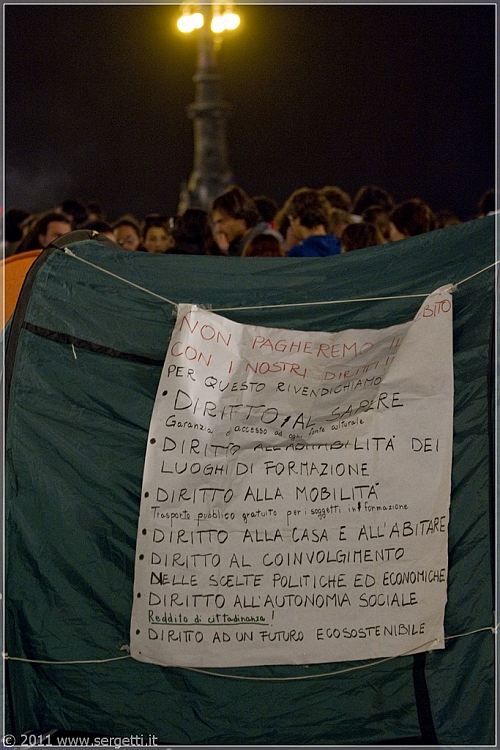 NON PAGHEREMO IL DEBITO
CON I NOSTRI DIRITTI!!
PER QUESTO RIVENDICHIAMO
• DIRITTO AL SAPERE
Garanzia d'accesso ad ogni fonte culturale
• DIRITTO ALL'ABITABILITÀ DEI
LUOGHI DI FORMAZIONE
• DIRITTO ALLA MOBILITÀ
Trasporto pubblico gratuito per i soggetti in formazione
• DIRITTO ALLA CASA E ALL'ABITARE
• DIRITTO AL COINVOLGIMENTO
NELLE SCELTE POLITICHE ED ECONOMICHE
• DIRITTO ALL'AUTONOMIA SOCIALE
Reddito di cittadinanza!
• DIRITTO AD UN FUTURO ECOSOSTENIBILE
© 2011 www.sergetti.it